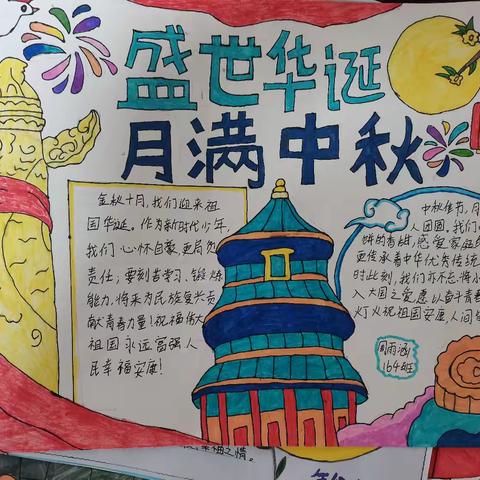 盛世华诞
月满中秋
金秋十月,我们迎来祖
国华诞。作为新时代少年,
我们心怀自豪,更肩负
责任:要刻苦学习、锻炼
能力,将来为民族复兴贡
献青春力量!祝福伟大
祖国永远富强人
民幸福安康!
中秋佳节,月
人团圆,我们
饼的香甜,感受家庭的
更传承着中华优秀传统
时此刻,我们亦不忘将小
入大国之爱,愿以奋斗青春
灯火祝祖国安康,人间
周雨涵
164班
福之情。